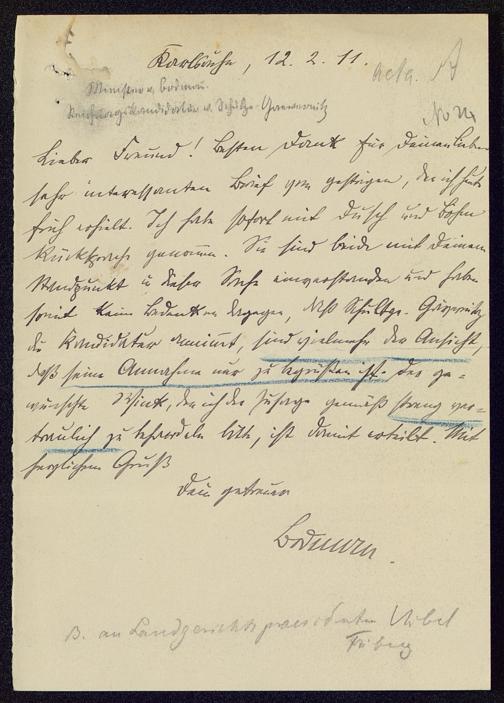 Karlsruhe, 12. 2. 11.
acta.
Minister v. Bodman.
Reichstagskandidatur v. Schulze-Gaevernitz
No 24
Lieber Freund! Besten Dank für Deinen lieben
sehr interessanten Brief vom gestrigen, den ich heute
früh erhielt. Ich habe sofort mit Dusch und Böhm
Rücksprache genommen. Sie sind beide mit Deinem
Standpunkt in dieser Sache einverstanden und haben
somit kein Bedenken dagegen, daß Schultze-Gävernitz
die Kandidatur annimmt, sind vielmehr der Ansicht,
daß seine Annahme nur zu begrüßen ist. Der ge-
wünschte Wink, den ich der Zusage gemäß streng ver-
traulich zu behandeln bitte, ist damit erteilt. Mit
herzlichem Gruß
Dein getreuer
Bodman.
B. an Landgerichtspraesidenten Uibel
Friberg